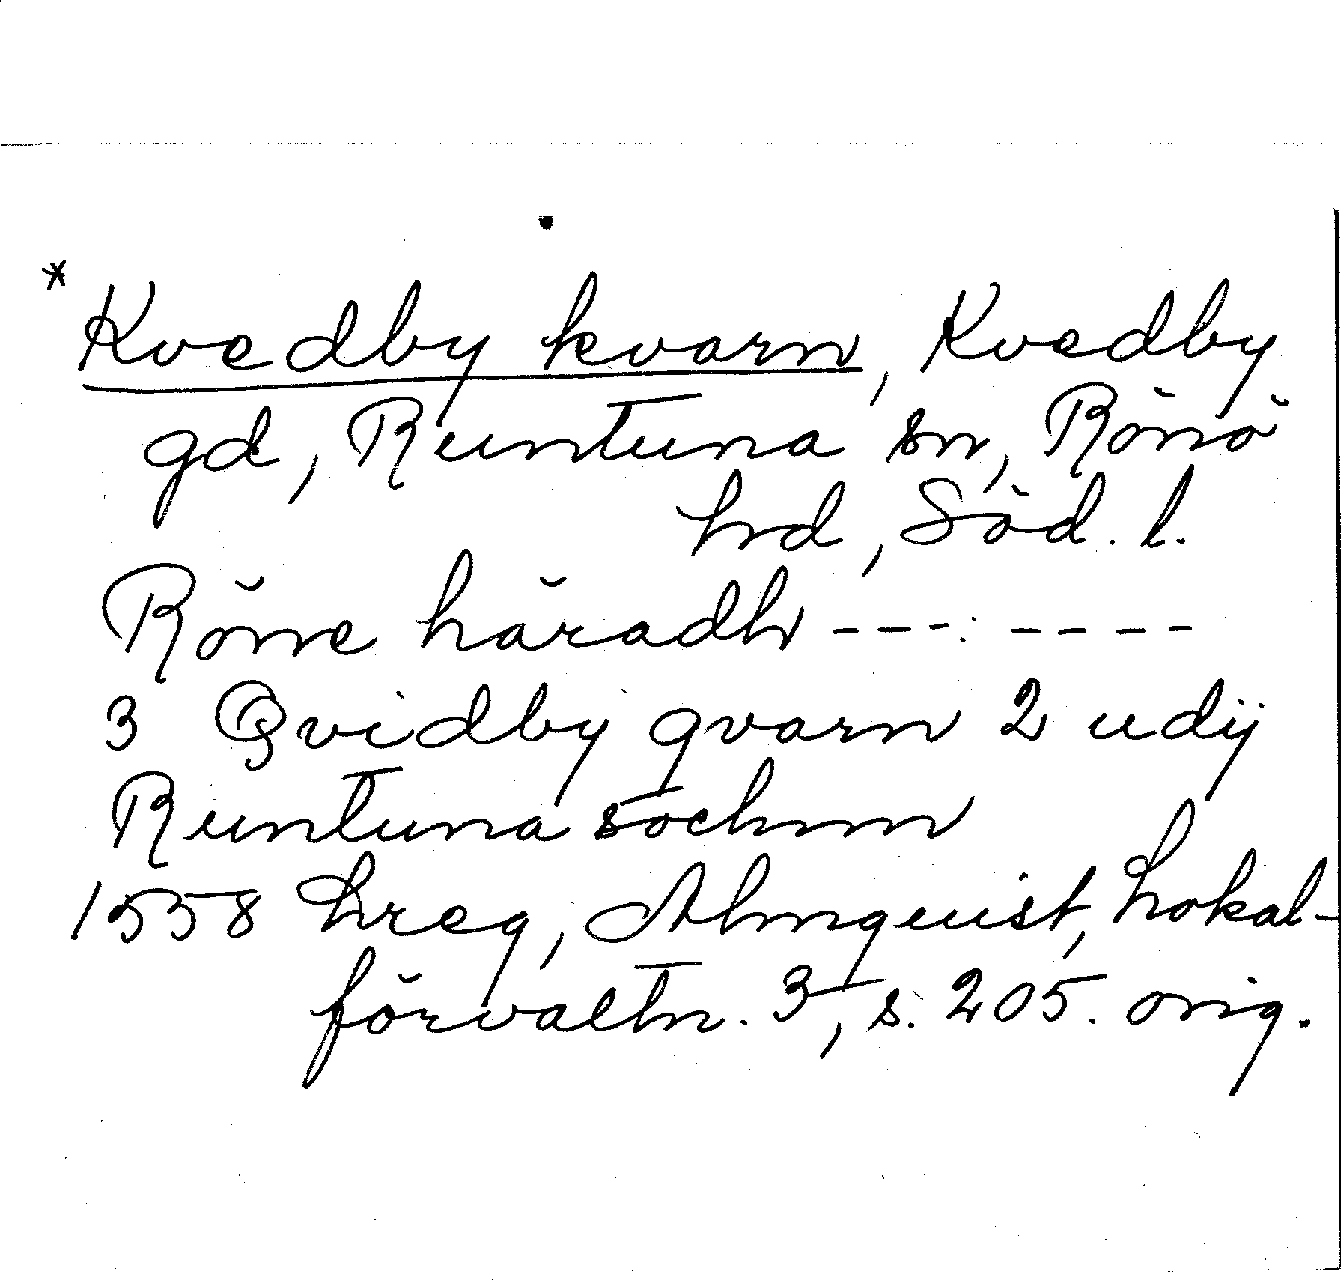 * Kvedby kvarn, Kvedby
gd, Runtuna sn, Rönö
hd, Söd. l.
Röne häradh --- ----
3 Qvidby qvarn 2 udij
Runtuna sochnn
1558 hreg, Almquist, Lokal-
förvaltn. 3, s. 205. orig.